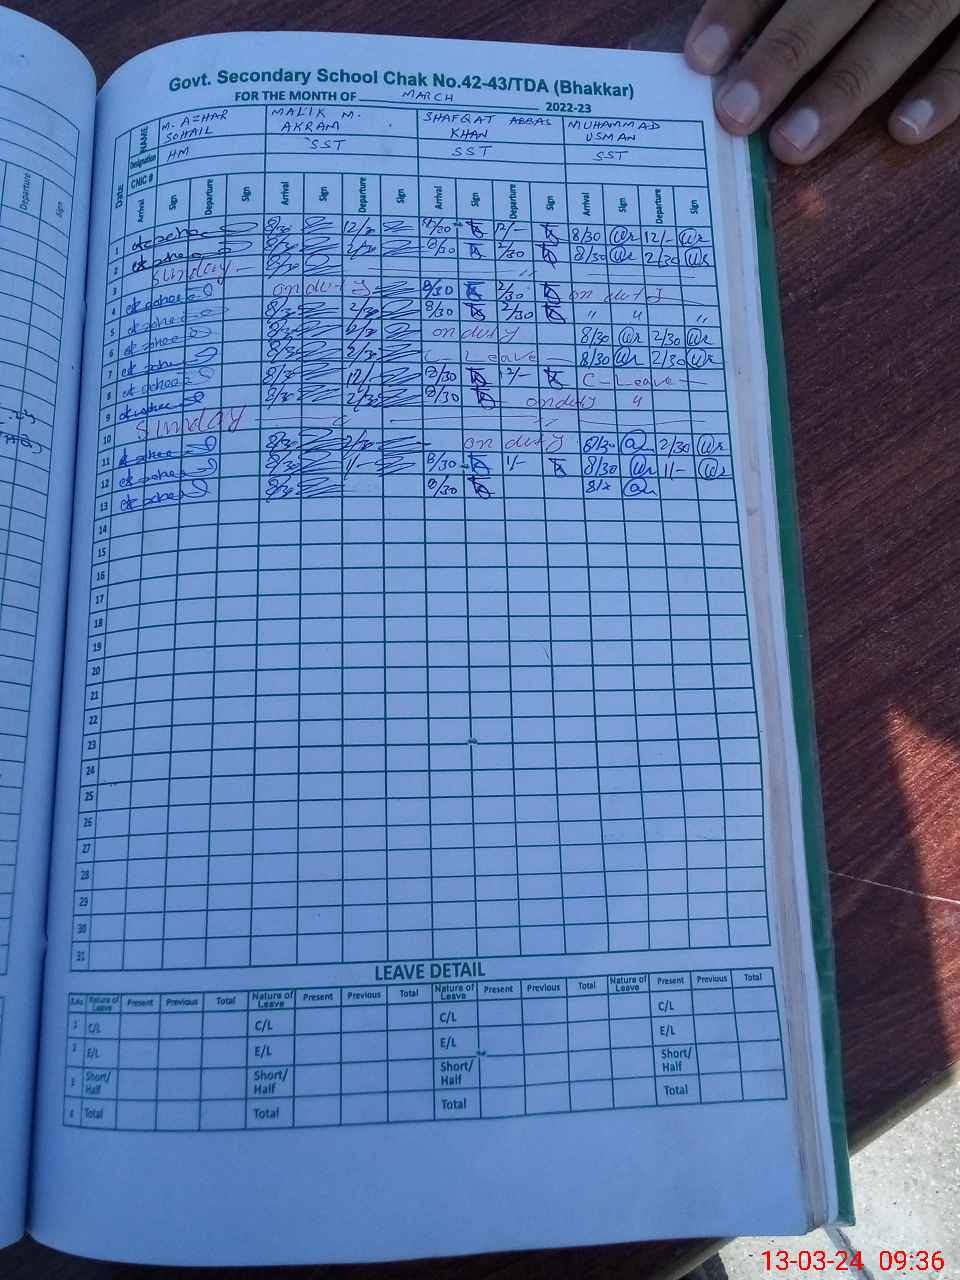 Govt. Secondary School Chak No.42-43/TDA (Bhakkar)
FOR THE MONTH OF MARCH 2022-23
NAME M. AZHAR SOHAIL MALIK M. AKRAM SHAFQAT ABBAS KHAN MUHAMMAD USMAN
Designation HM SST SST SST
CNIC #
Date Arrival Sign Departure Sign Arrival Sign Departure Sign Arrival Sign Departure Sign Arrival Sign Departure Sign
1 8/30 12/- 8/30 12/-
2 8/30 2/30 8/30 2/30 8/30 2/30
3 Sunday
4 on duty 8/30 2/30 on duty
5 8/30 2/30 8/30 2/30 " " "
6 8/30 2/30 on duty 8/30 2/30
7 8/30 2/30 C-Leave 8/30 2/30
8 8/30 12/- 8/30 12/- C-Leave
9 8/30 2/30 8/30 on duty
10 Sunday
11 8/30 2/30 on duty 8/30 2/30
12 8/30 1/- 8/30 1/- 8/30 1/-
13 8/30 8/30
14
15
16
17
18
19
20
21
22
23
24
25
26
27
28
29
30
31
LEAVE DETAIL
S.No Nature of Leave Present Previous Total Nature of Leave Present Previous Total Nature of Leave Present Previous Total Nature of Leave Present Previous Total
1 C/L C/L C/L C/L
2 E/L E/L E/L E/L
3 Short/Half Short/Half Short/Half Short/Half
4 Total Total Total Total
Departure
Sign
13-03-24 09:36